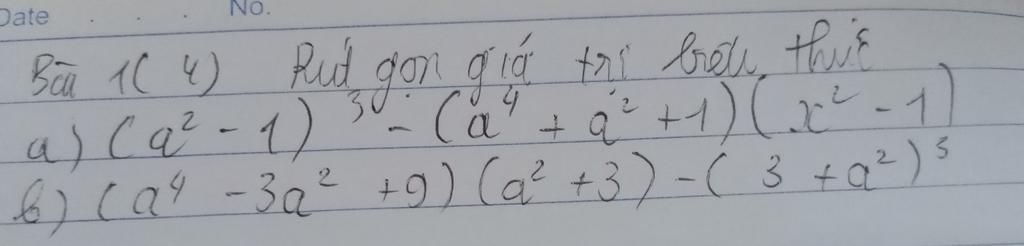 Date . . No.
Bài 1( 4) Rút gọn giá trị biểu thức
a) (a² - 1)³ - (a⁴ + a² + 1)(x² - 1)
b) (a⁴ - 3a² + 9)(a² + 3) - (3 + a²)³